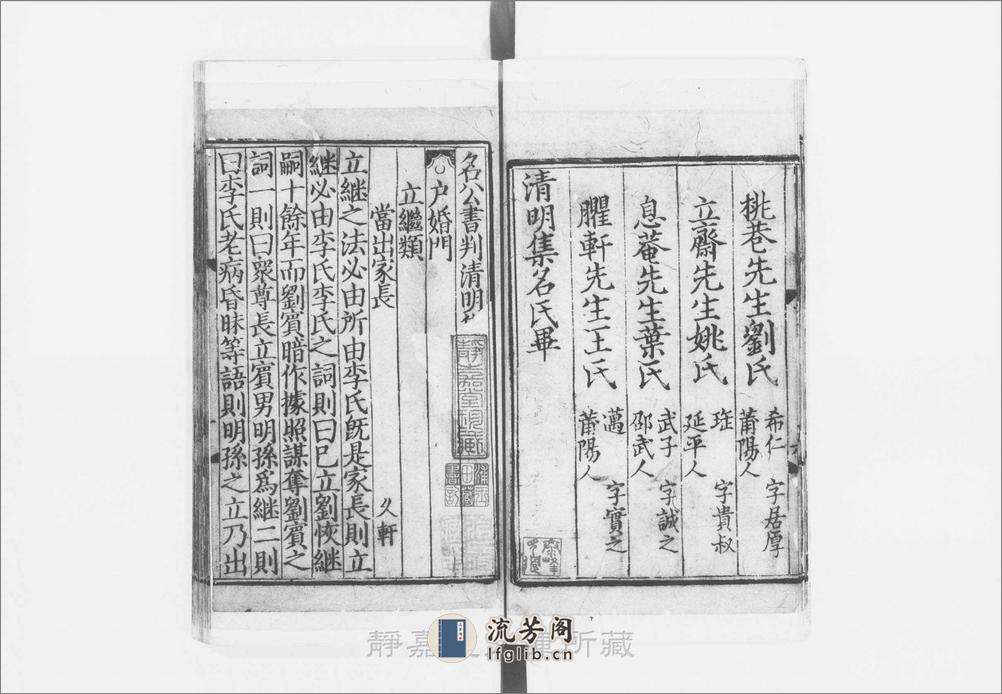 桃巷先生劉氏 希仁 字居厚 莆陽人
立齋先生姚氏 珤 字貴叔 延平人
息菴先生葉氏 武子 字誠之 邵武人
臞軒先生王氏 邁 字實之 莆陽人
清明集名氏畢
名公書判清明
户婚門
立繼類
當出家長 久軒
立繼之法必由所由李氏旣是家長則立
継必由李氏李氏之詞則曰已立劉恢継
嗣十餘年而劉賓暗作據照謀奪劉賓之
詞一則曰衆尊長立賓男明孫爲継二則
曰李氏老病昏昧等語則明孫之立乃出
靜嘉堂 所藏
流芳阁
lfglib.cn